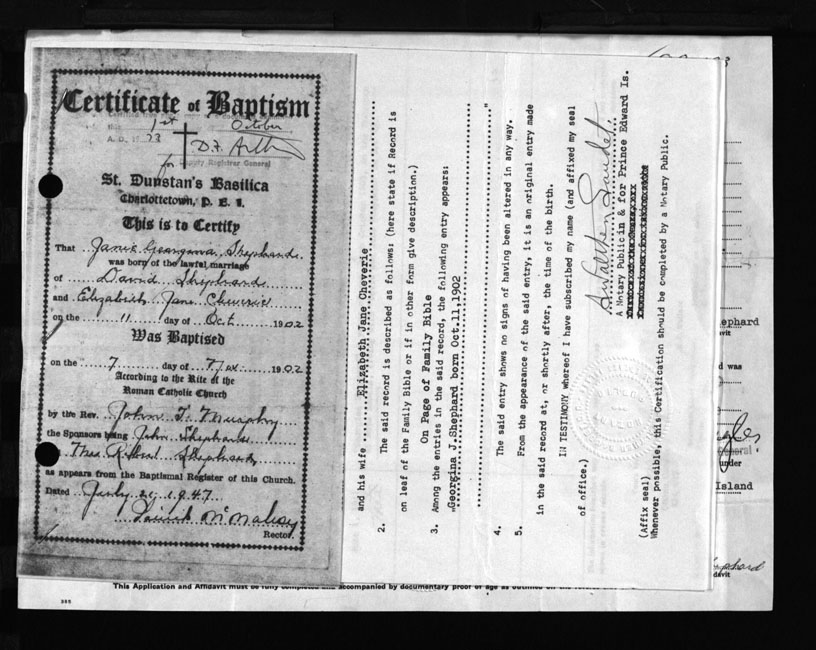 Certificate of Baptism
1st October
A. D. 19 73
for D.F.
Deputy Registrar General
St. Dunstan's Basilica
Charlottetown, P. E. I.
This is to Certify
That Janie Georgina Shephard
was born of the lawful marriage
of David Shephard
and Elizabeth Jane
on the 11 day of Oct 1902
Was Baptised
on the 7 day of Nov. 1902
According to the Rite of the
Roman Catholic Church
by the Rev. John T. Murphy
the Sponsors being John Shephard
Shephard
as appears from the Baptismal Register of this Church.
Dated 1947
Rector.
and his wife Elizabeth Jane Cheverie
2. The said record is described as follows: (here state if Record is
on leaf of the Family Bible or if in other form give description.)
On Page of Family Bible
3. Among the entries in the said record, the following entry appears:
"Georgina J. Shephard born Oct.11,1902
"
4. The said entry shows no signs of having been altered in any way.
5. From the appearance of the said entry, it is an original entry made
in the said record at, or shortly after, the time of the birth.
IN TESTIMONY whereof I have subscribed my name (and affixed my seal
of office.)
Gaudet
A Notary Public in & for Prince Edward Is.
(Affix seal)
Whenever possible, this Certification should be completed by a Notary Public.
ephard
d was
General
under
Island
Shephard
davit
This Application and Affidavit must be fully completed and accompanied by documentary proof of age as outlined on the